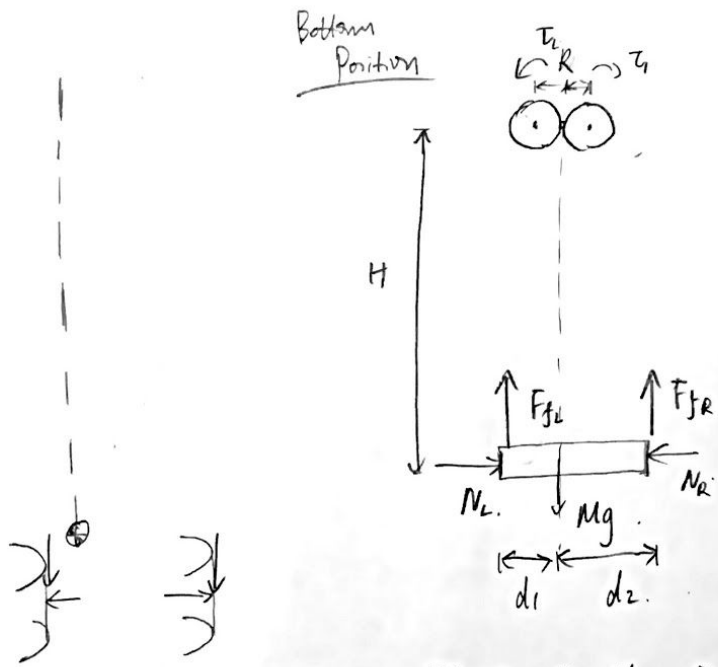 Bottom
Position
τ₂ R τ₁
H
F_fL F_fR
N_L. Mg. N_R.
d₁ d₂.